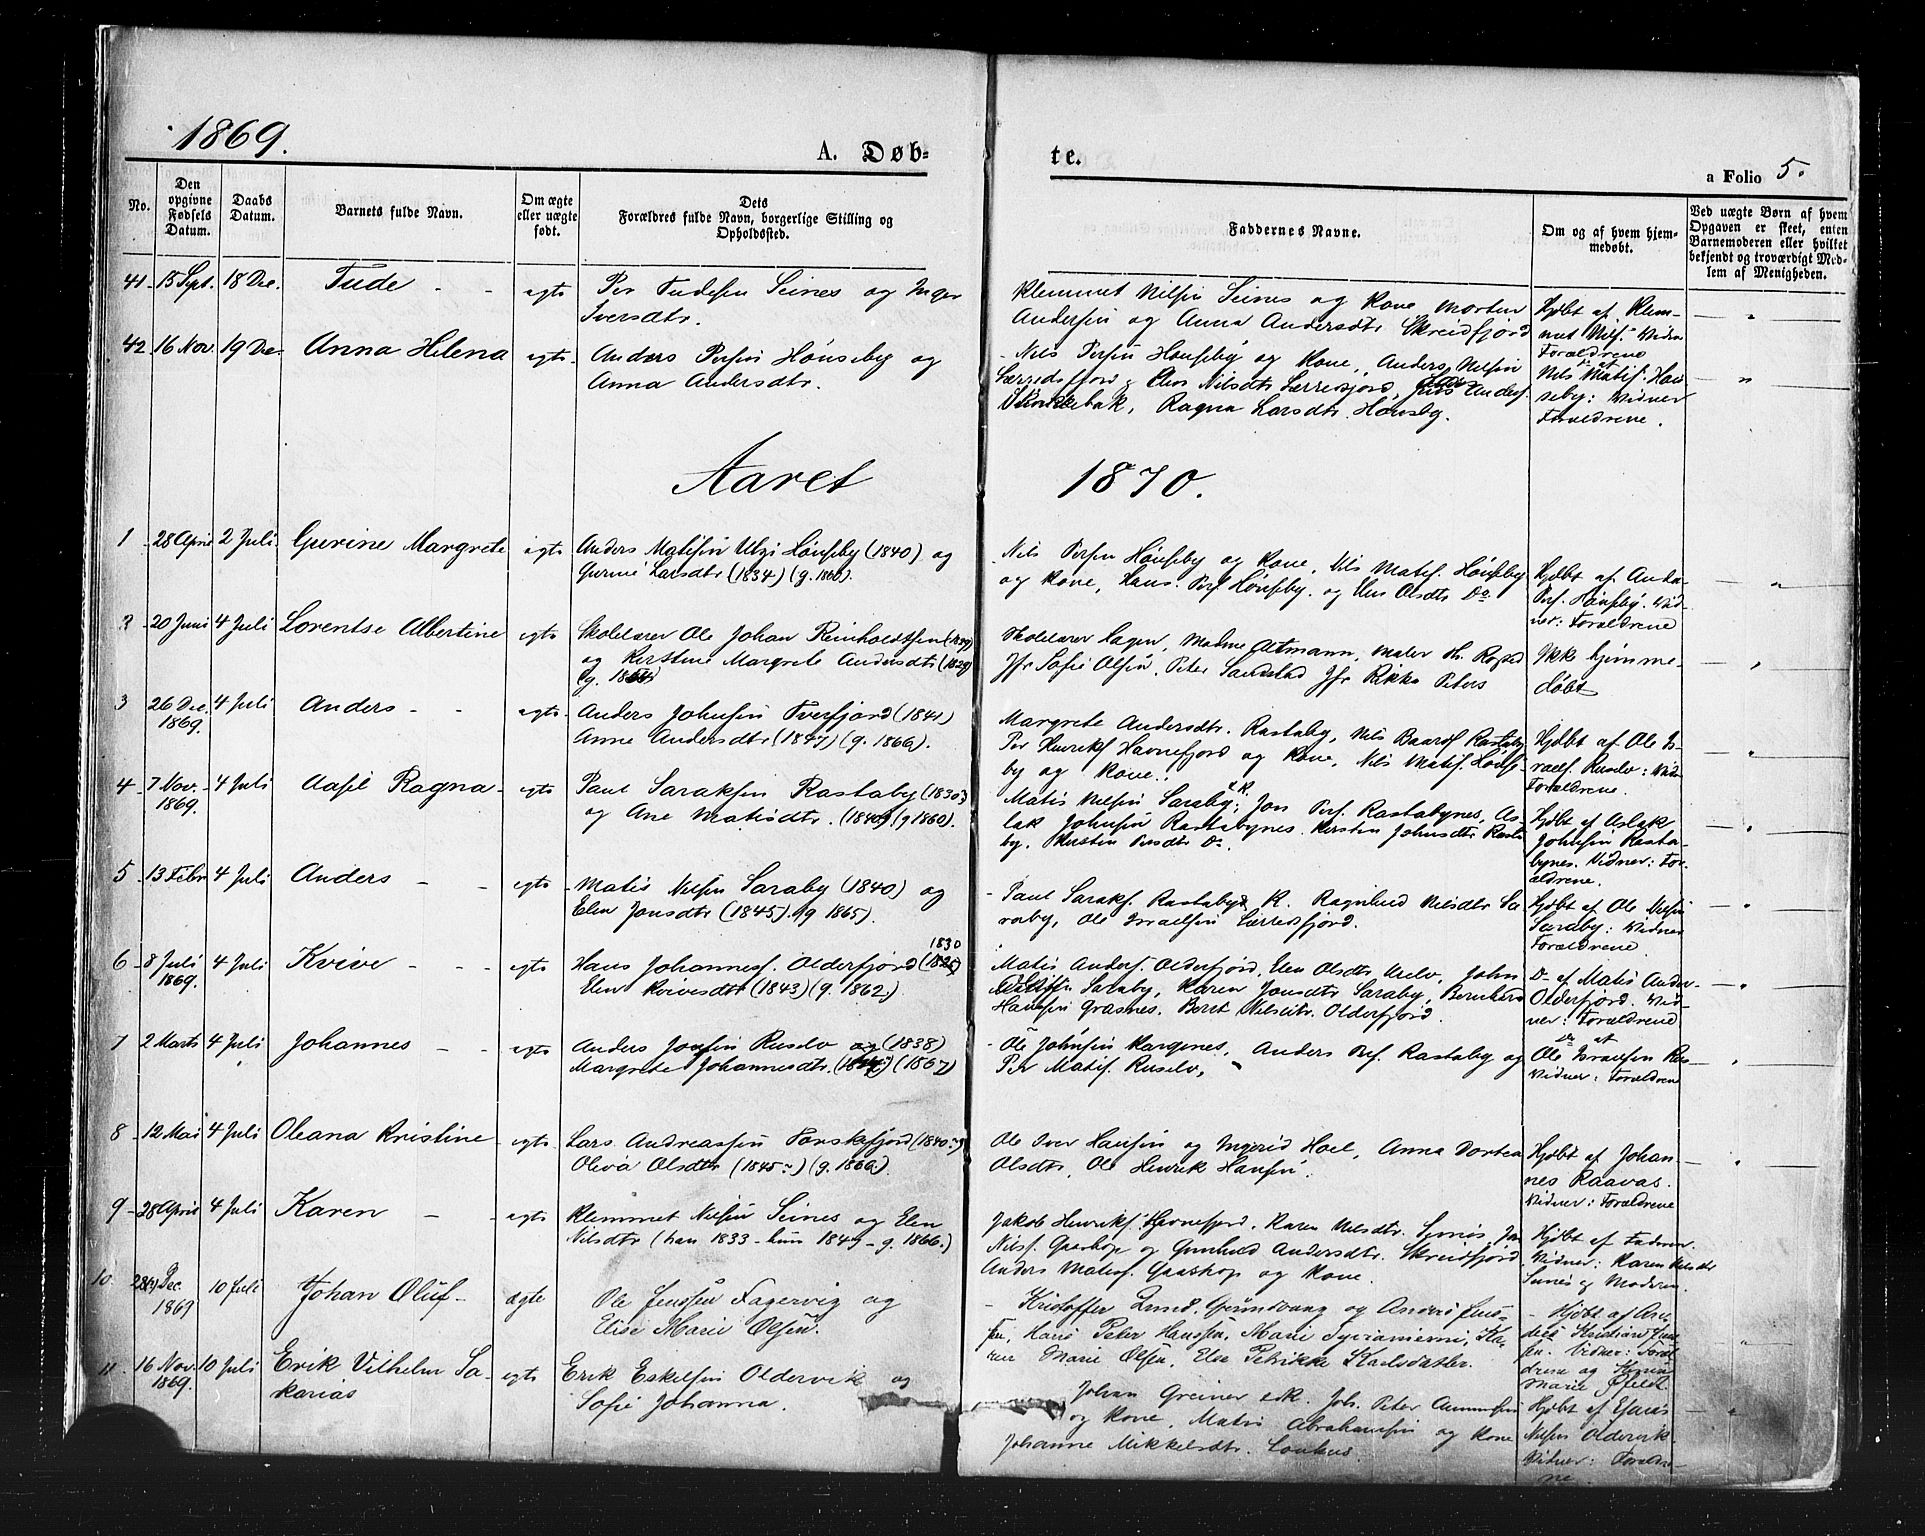 1869.
A. Døb-
te.
a Folio 5.
No.
Den opgivne Fødsels Datum.
Daabs Datum.
Barnets fulde Navn.
Om ægte eller uægte født.
Dets Forældres fulde Navn, borgerlige Stilling og Opholdssted.
Faddernes Navne.
Om og af hvem hjemmedøbt.
Ved uægte Børn af hvem Opgaven er skeet, enten Barnemoderen eller hvilket bekjendt og troværdigt Medlem af Menigheden.
41 15 Sept. 18 Dec. Tude - - ægte
Per Tudesen Seines og Inger
Iversdtr.
Klemmet Nilsen Seines og Kone, Morten
Andersen og Anna Andersdtr Skreidfjord
Hjdbt af Klem-
met Nils.
Forældrene
42 16 Nov. 19 Dec. Anna Helena ægte
Anders Persen Hønseby og
Anna Andersdtr.
- Nils Persen Hønseby og Kone, Anders Nilsen
Lærredsfjord Nilsdtr Lærredsfjord, Anders.
Ragna Larsdtr. Hønseby.
Nils Matis. Høn-
seby: Vidner
Forældrene.
Aaret 1870.
1 28 April 2 Juli Gurine Margrete ægte
Anders Matisen Hønseby (1840) og
Gurine Larsdtr (1834) (g. 1860).
Nils Persen Hønseby og Kone, Nils Matis. Hønseby
og Kone, Hans Pers. Hønseby. og Elen Olsdtr Do
Hjdbt af Anders
Pers. Hønseby. Vid-
ner: Forældrene
2 20 Juni 4 Juli Lorentse Albertine ægte
Skolelærer Ole Johan Reinholdtsen
og Kerstine Margrete Andersdtr (1829)
Skolelærer Hagen, Madme Altmann, Maler
Jfr Sofie Olsen, Peter Sandstad Jfr Rikka Peters
Ikke hjemme-
døbt
3 26 Dec. 1869. 4 Juli Anders - - ægte
Anders Johnsen Tverfjord (1841)
Anne Andersdtr (1847) (g. 1866).
Margrete Andersdtr. Rastaby, Nils Baards. Rastaby
Per Henriks. Havnefjord og Kone, Nils Matis. Hønse-
by og Kone.
Hjdbt af Ole Is-
raels. Ruselv: Vid
Forældrene.
4 7 Nov. 1869. 4 Juli Aasil Ragna ægte
Paul Saraksen Rastaby (1830)
og Ane Matisdtr. (g 1860).
Matis Nilsen Saraby, K. Jon Pers. Rastabynes, As-
lak Johnsen Rastabynes. Kersten Johnsdtr Rasta
by. Kersten Persdtr Do.
Hjdbt af Aslak
Johnsen Rasta-
bynes. Vidner: For-
ældrene.
5 13 Febr 4 Juli Anders - - ægte
Matis Nilsen Saraby (1840) og
Elen Jonsdtr (1845). (g 1865).
- Paul Saraks. Rastaby & K. Ragnhild Nilsdtr Sa-
raby, Ole Israelsen Lærredsfjord.
Hjdbt af Ole Nilsen
Saraby: Vidner
Forældrene
6 8 Juli 1869. 4 Juli Kvive - - - ægte
1830
Hans Johannes. Olderfjord
Elen Kvivesdtr (1843) (g. 1862)
Matis Anders. Olderfjord, Elen Olsdtr, John
Saraby, Karen Jonsdtr Saraby, Berent
Hansen Grasnes, Beret Nilsdtr. Olderfjord.
Do af Matis Anders
Olderfjord. Vid-
ner: Forældrene
7 2 Marts 4 Juli Johannes - - ægte
Anders Jonsen Ruselv og (1838)
Margrete Johannesdtr. (1867)
- Ole Johnsen Kargenes, Anders Pers. Rastaby og
Per Matis. Ruselv,
Do af
Ole Israelsen Rus
Vidner: Forældrene
8 12 Mai 4 Juli Oleana Kristine ægte
Lars Andreassen Torskefjord
Oliva Olsdtr (1845) (g. 1869)
Ole Iver Hansen og Ingerid Hoel, Anna Dortea
Olsdtr, Ole Henrik Hansen.
Hjdbt af Johan-
nes Raavas.
Vidner: Forældrene
9 28 April 4 Juli Karen - - ægte
Klemmet Nilsen Seines og Elen
Nilsdtr (han 1833 - hun 1843 - g. 1866.)
Jakob Henriks. Havnefjord. Karen Nilsdtr.
Nils. Gaashop og Gunhild Andersdtr. Skreidfjord
Anders Matis. Gaashop og Kone.
Hjdbt af Faderen.
Vidner: Karen Nilsdtr
og Moderen.
10. Dec. 1869 10 Juli Johan Oluf - ægte
Ole Jenssen Fagervig og
Elise Marie Olsen.
- Kristoffer Lund, Grundvang og Anders Jens-
sen, Hans Peter Hanssen, Marie
Marie Olsen, Else Petrikke Karlsdatter.
- Hjdbt af
Kristian
Vidner: Foræl-
drene og
Marie
11 16 Nov. 1869. 10 Juli Erik Vilhelm Sa-
karias ægte
Erik Eskilsen Oldervik og
Sofie Johanna.
Johan Greiner Joh. Peter
og Kone, Matis Abrahamsen og Kone
Johanne Mikkelsdtr.
Hjdbt af
Nilsen Oldervik
Vidner: Forældre-
ne.